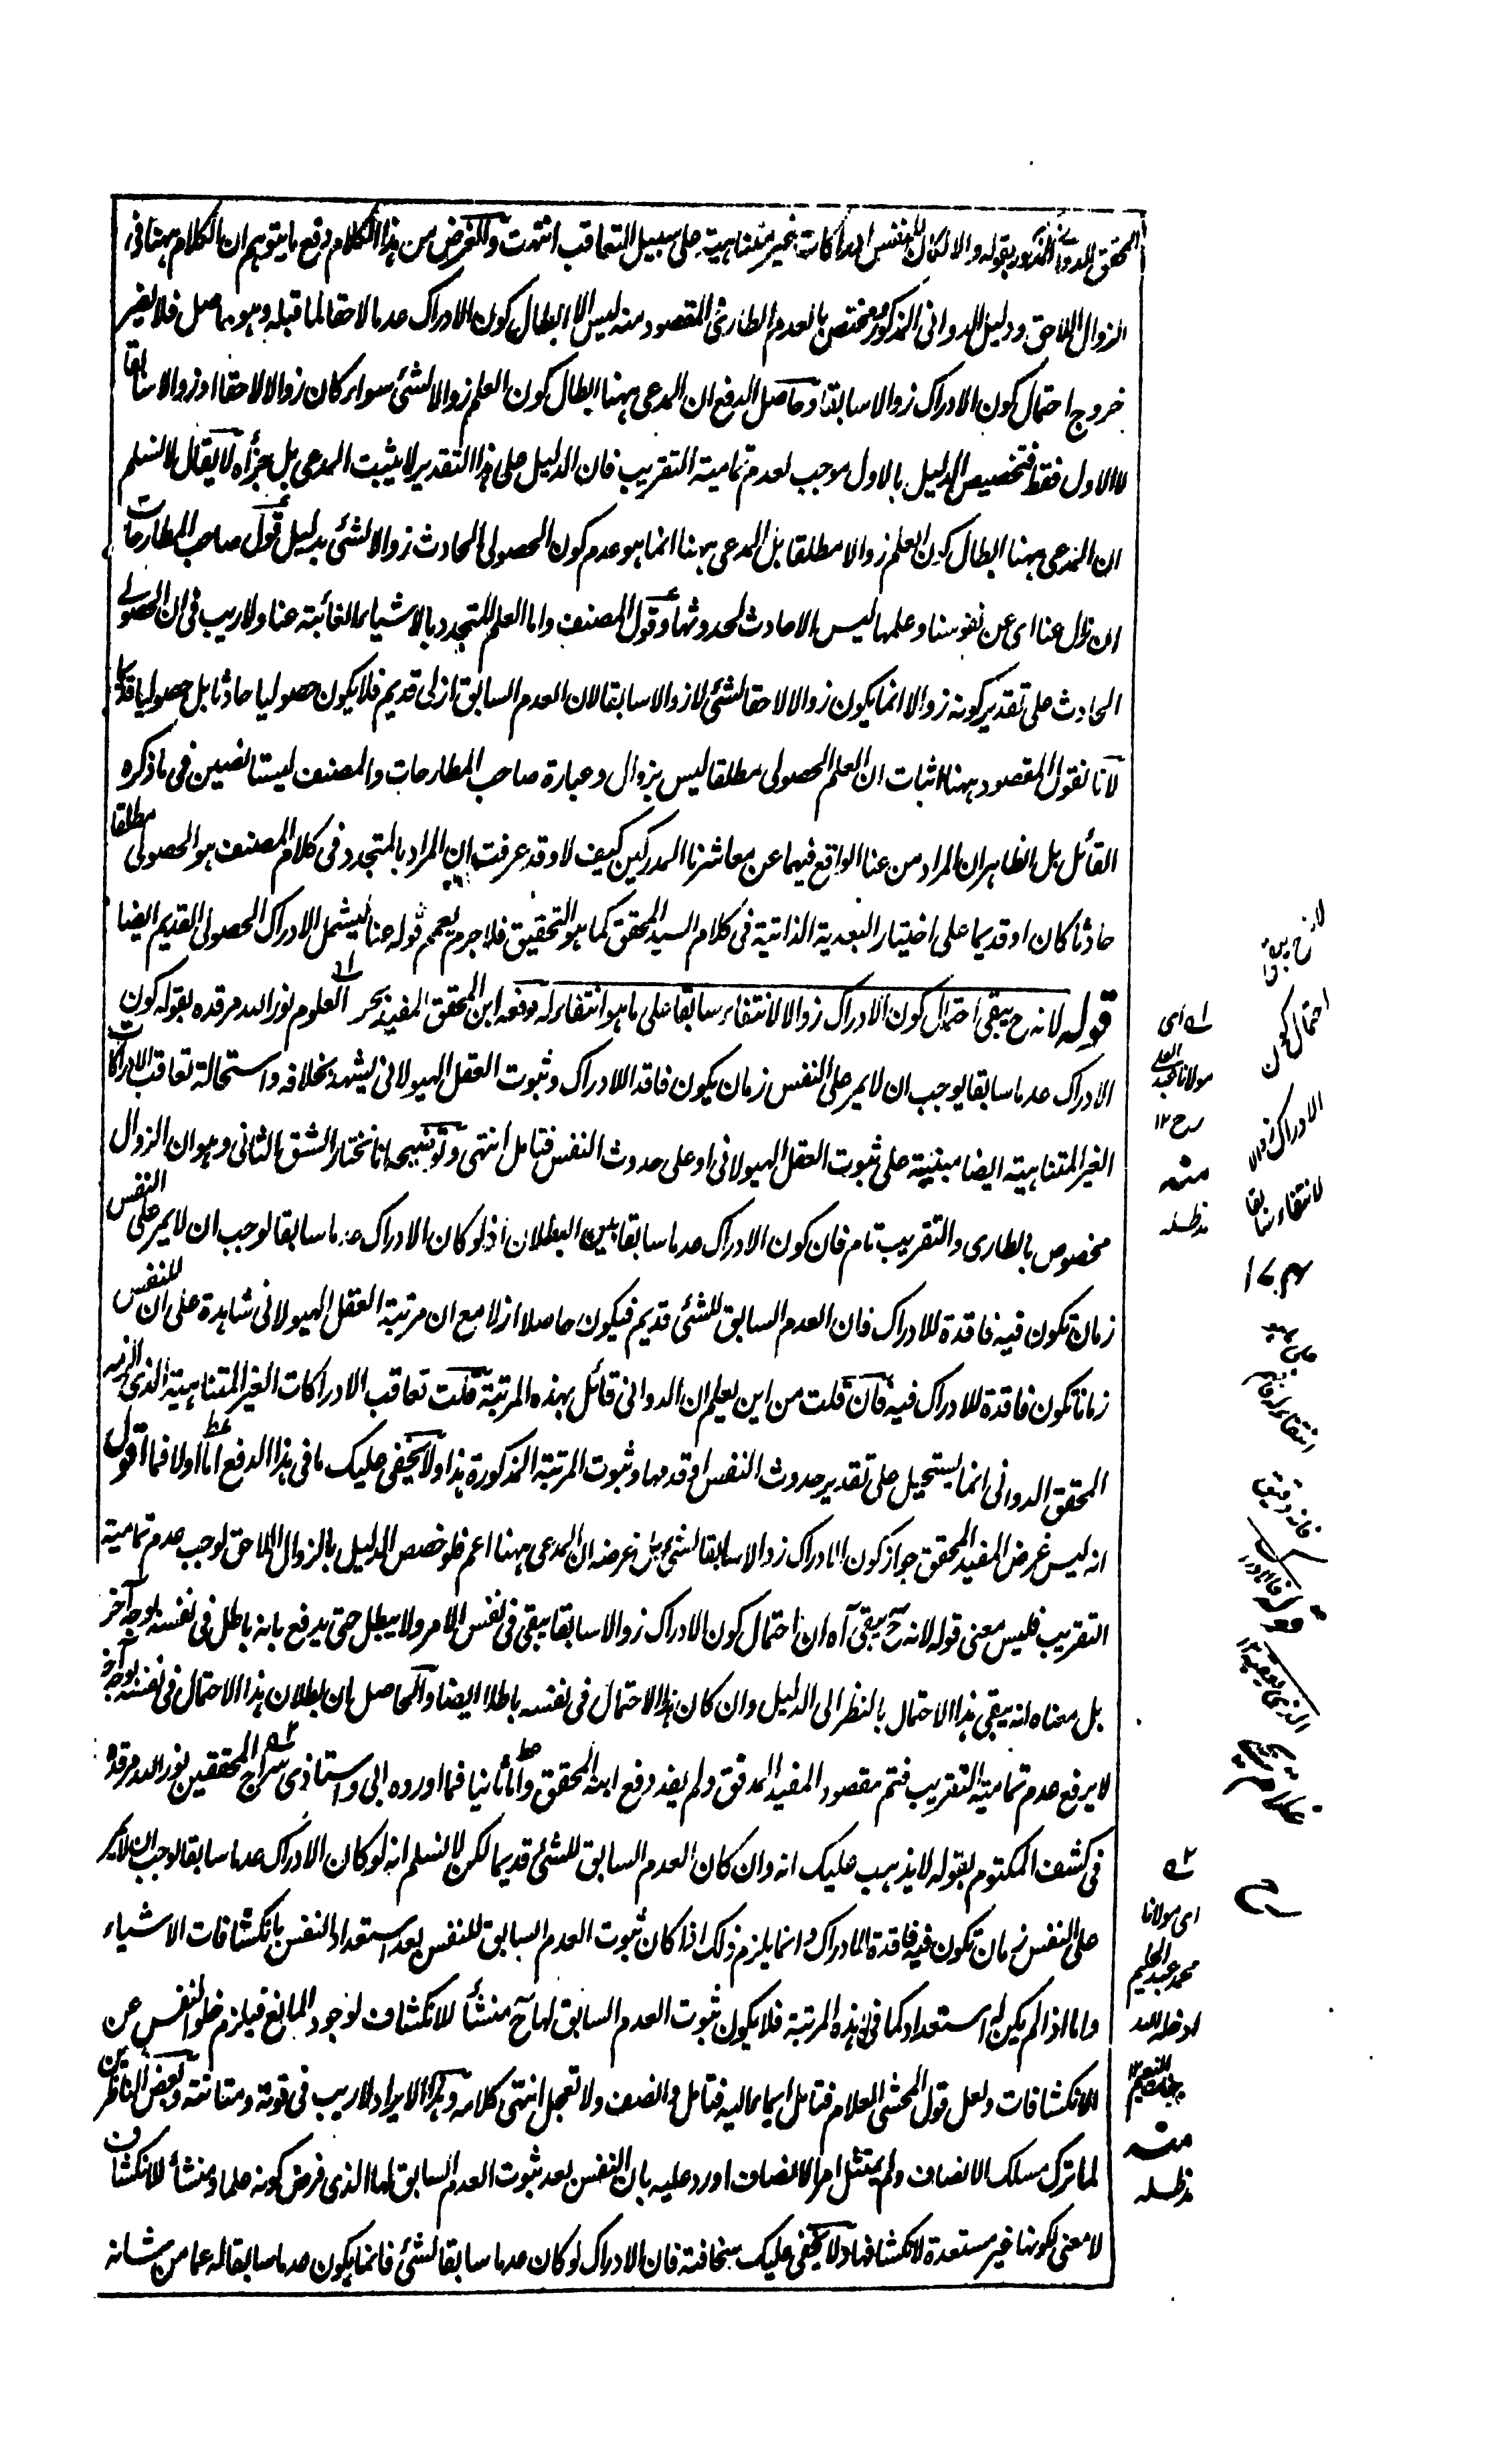 المحقق الدوانی المذکور بقوله والا لکان للنفس ادراکات غیر متناهیة علی سبیل التعاقب انتهت والغرض من هذا الکلام دفع ما یتوهم ان الکلام ههنا فی
الزوال اللاحق ودلیل الدوانی المذکور مختص بالعدم الطاری المقصود منه لیس الا ابطال کون الادراک عدما لاحقا لما قبله وهو حاصل فلا یضر
خروج احتمال کون الادراک زوالا سابقا وحاصل الدفع ان المدعی ههنا ابطال کون العلم زوالا لشئ سواء کان زوالا لاحقا او زوالا سابقا
لا الاول فقط فتخصیص الدلیل بالاول موجب لعدم تمامیة التقریب فان الدلیل علی هذا التقدیر لا یثبت المدعی بل جزأه لا یقال لا نسلم
ان المدعی ههنا ابطال کون العلم زوالا مطلقا بل المدعی ههنا انما هو عدم کون الحصولی الحادث زوالا لشئ بدلیل قول صاحب المطارحات
ان زال عنا ای عن نفوسنا وعلمها لیس الا حادث لحدوثها وقول المصنف واما العلم المتجدد بالاشیاء الغائبة عنا ولا ریب فی ان الحصولی
الحادث علی تقدیر کونه زوالا انما یکون زوالا لاحقا لشئ لا زوالا سابقا لان العدم السابق ازلی قدیم فلا یکون حصولیا حادثا بل حصولیا قدیما
لانا نقول المقصود ههنا اثبات ان العلم الحصولی مطلقا لیس بزوال وعبارة صاحب المطارحات والمصنف لیستا نصین فی ما ذکره
القائل بل الظاهر ان المراد من عنا الواقع فیهما عن معاشرنا المدرکین کیف لا وقد عرفت ان المراد بالمتجدد فی کلام المصنف هو الحصولی مطلقا
حادثا کان او قدیما علی اختیار البعدیة الذاتیة فی کلام السید المحقق کما هو التحقیق فلا جرم یعمم قوله عنا لیشمل الادراک الحصولی القدیم ایضا
قوله لانه ح یبقی احتمال کون الادراک زوالا لانتفاء سابقا علی ما هو انتفاء له دفعه ابن المحقق المفید بحر العلوم نور الله مرقده بقوله کون
الادراک عدما سابقا یوجب ان لا یمر علی النفس زمان یکون فاقدا للادراک وثبوت العقل الهیولانی یشهد بخلافه واستحالة تعاقب الادراکات
الغیر المتناهیة ایضا مبنیة علی ثبوت العقل الهیولانی او علی حدوث النفس فتامل انتهی وتوضیحه انا نختار الشق الثانی وهو ان الزوال
مخصوص بالطاری والتقریب تام فان کون الادراک عدما سابقا بین البطلان اذ لو کان الادراک عدما سابقا لوجب ان لا یمر علی النفس
زمان تکون فیه فاقدة للادراک فان العدم السابق للشئ قدیم فیکون حاصلا ازلا مع ان مرتبة العقل الهیولانی شاهدة علی ان للنفس
زمانا تکون فاقدة للادراک فیه فان قلت من این یعلم ان الدوانی قائل بهذه المرتبة قلت تعاقب الادراکات الغیر المتناهیة الذی الزمه
المحقق الدوانی انما یستحیل علی تقدیر حدوث النفس او قدمها وثبوت المرتبة المذکورة هذا ولا یخفی علیک ما فی هذا الدفع اما اولا فما اقول
انه لیس غرض المفید المحقق جواز کون الادراک زوالا سابقا لشئ بل غرضه ان المدعی ههنا اعم فلو خصص الدلیل بالزوال اللاحق لوجب عدم تمامیة
التقریب فلیس معنی قوله لانه ح یبقی آه ان احتمال کون الادراک زوالا سابقا یبقی فی نفس الامر ولا یبطل حتی یدفع بانه باطل فی نفسه لوجه آخر
بل معناه انه یبقی هذا الاحتمال بالنظر الی الدلیل وان کان هذا الاحتمال فی نفسه باطلا ایضا والحاصل ان بطلان هذا الاحتمال فی نفسه لوجه آخر
لا یرفع عدم تمامیة التقریب فتم مقصود المفید المدقق ولم یفد دفع ابنه المحقق واما ثانیا فما اورده ابی واستاذی سراج المحققین نور الله مرقده
فی کشف المکتوم بقوله لا یذهب علیک انه وان کان العدم السابق للشئ قدیما لکن لا نسلم انه لو کان الادراک عدما سابقا لوجب ان لا یمر
علی النفس زمان تکون فیه فاقدة للادراک وانما یلزم ذلک اذا کان ثبوت العدم السابق للنفس بعد استعداد النفس بانکشافات الاشیاء
واما اذا لم یکن له استعداد کما فی هذه المرتبة فلا یکون ثبوت العدم السابق لها ح منشأ للانکشاف لوجود المانع فیلزم خلو النفس عن
الانکشافات ولعل قول المحشی العلام فتامل ایماء الیه فتامل وانصف ولا تعجل انتهی کلامه وهذا الایراد لا ریب فی قوته ومتانته وبعض الناظرین
لما ترک مسلک الانصاف ولم یمتثل امر الانصاف اورد علیه بان النفس بعد ثبوت العدم السابق لها الذی فرض کونه علما ومنشأ للانکشاف
لا معنی لکونها غیر مستعدة لانکشافها ولا یخفی علیک سخافته فان الادراک لو کان عدما سابقا لشئ فانما یکون عدما سابقا له عما من شانه
له ای
مولانا عبد العلی
رح ١٢
منه
مدظله
لانه ح یبقی
احتمال کون
الادراک زوالا
لانتفاء سابقا
٢ه
ای مولانا
محمد عبد الحلیم
ادخله الله
جنات النعیم ١٢
منه
مدظله